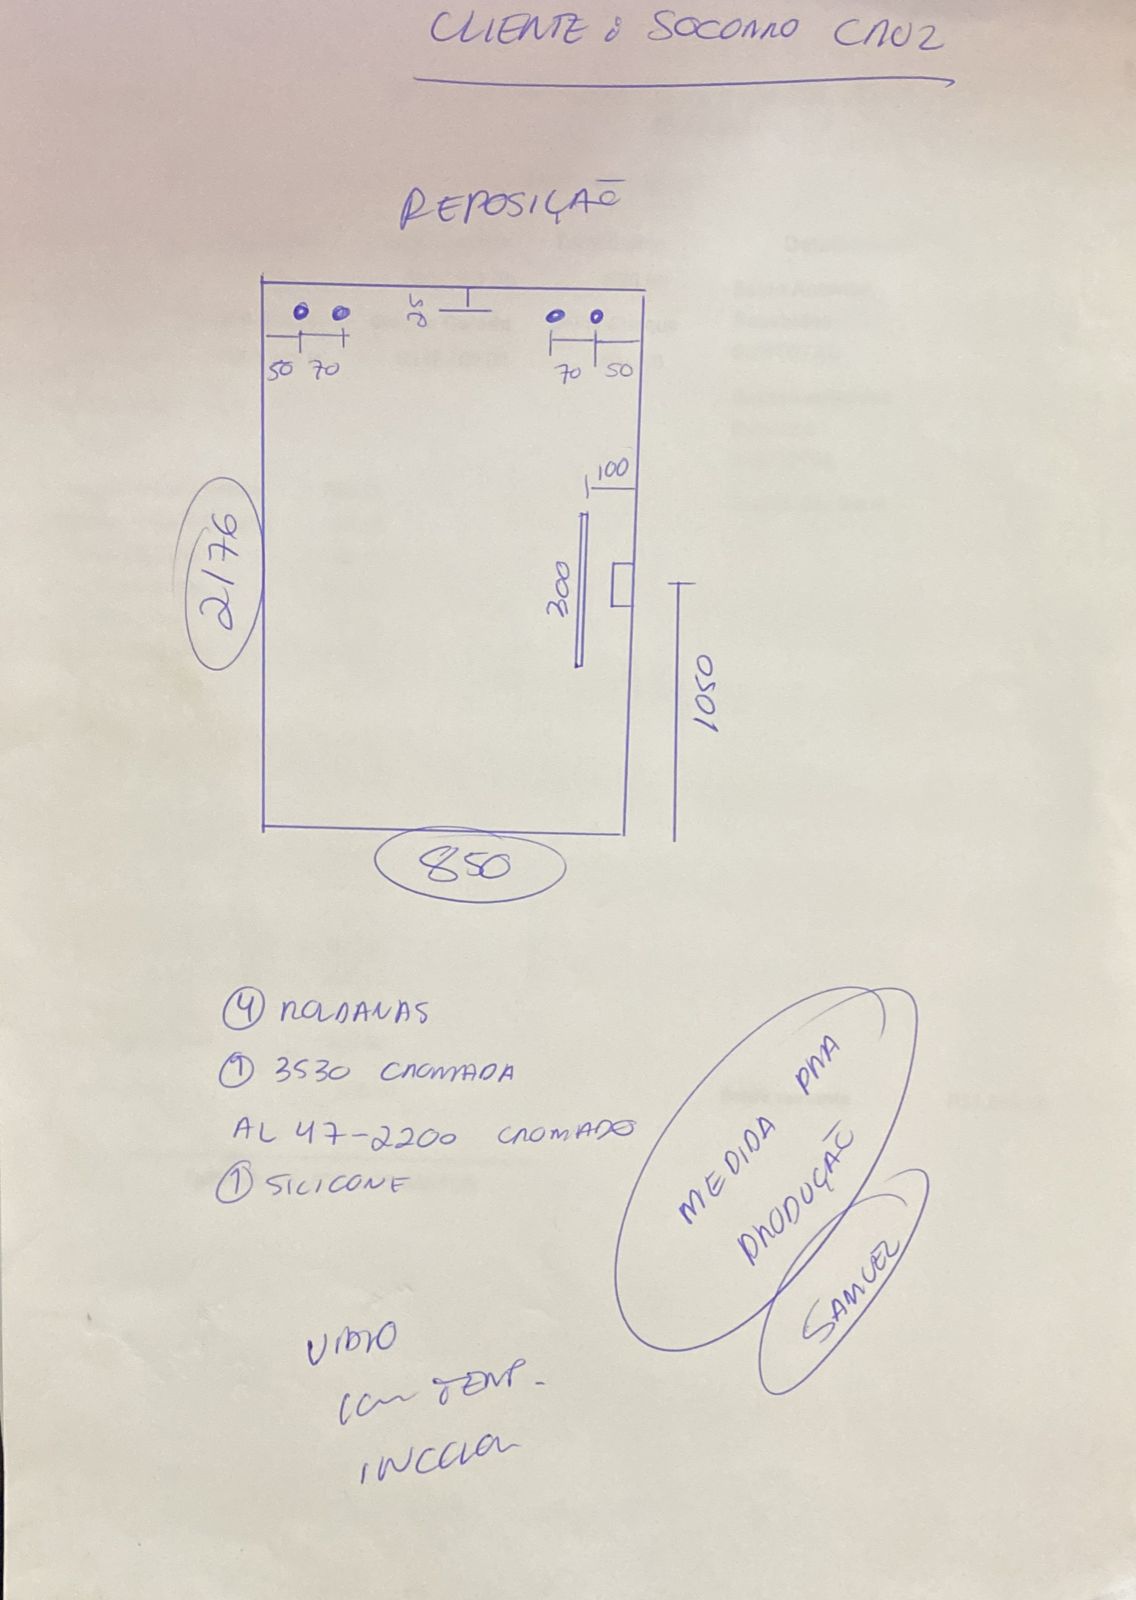 CLIENTE: SOCORRO CRUZ
REPOSIÇÃO
25
50 70
70 50
100
2176
300
1050
850
4 ROLDANAS
1 3530 CROMADA
AL 47-2200 CROMADO
1 SILICONE
MEDIDA PRA
PRODUÇÃO
SAMUEL
VIDRO
TEMP.
INCOLOR